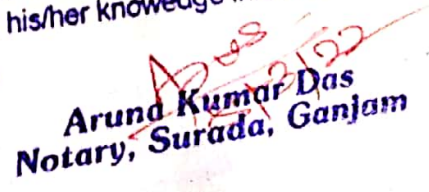 his/her knowledge
Aruna Kumar Das
Notary, Surada, Ganjam